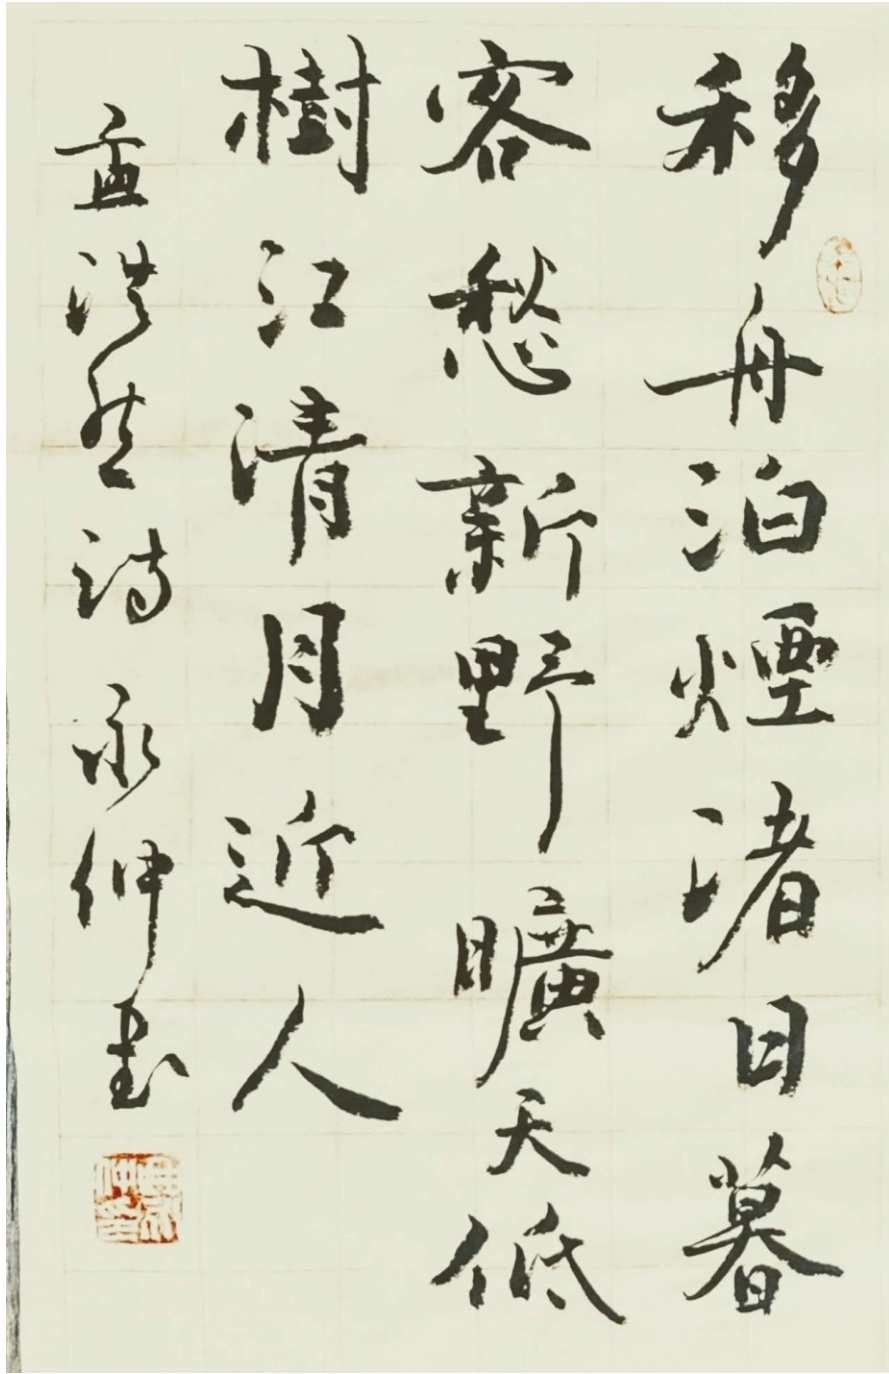 移舟泊煙渚日暮
客愁新野曠天低
樹江清月近人
孟浩然詩 永仲書